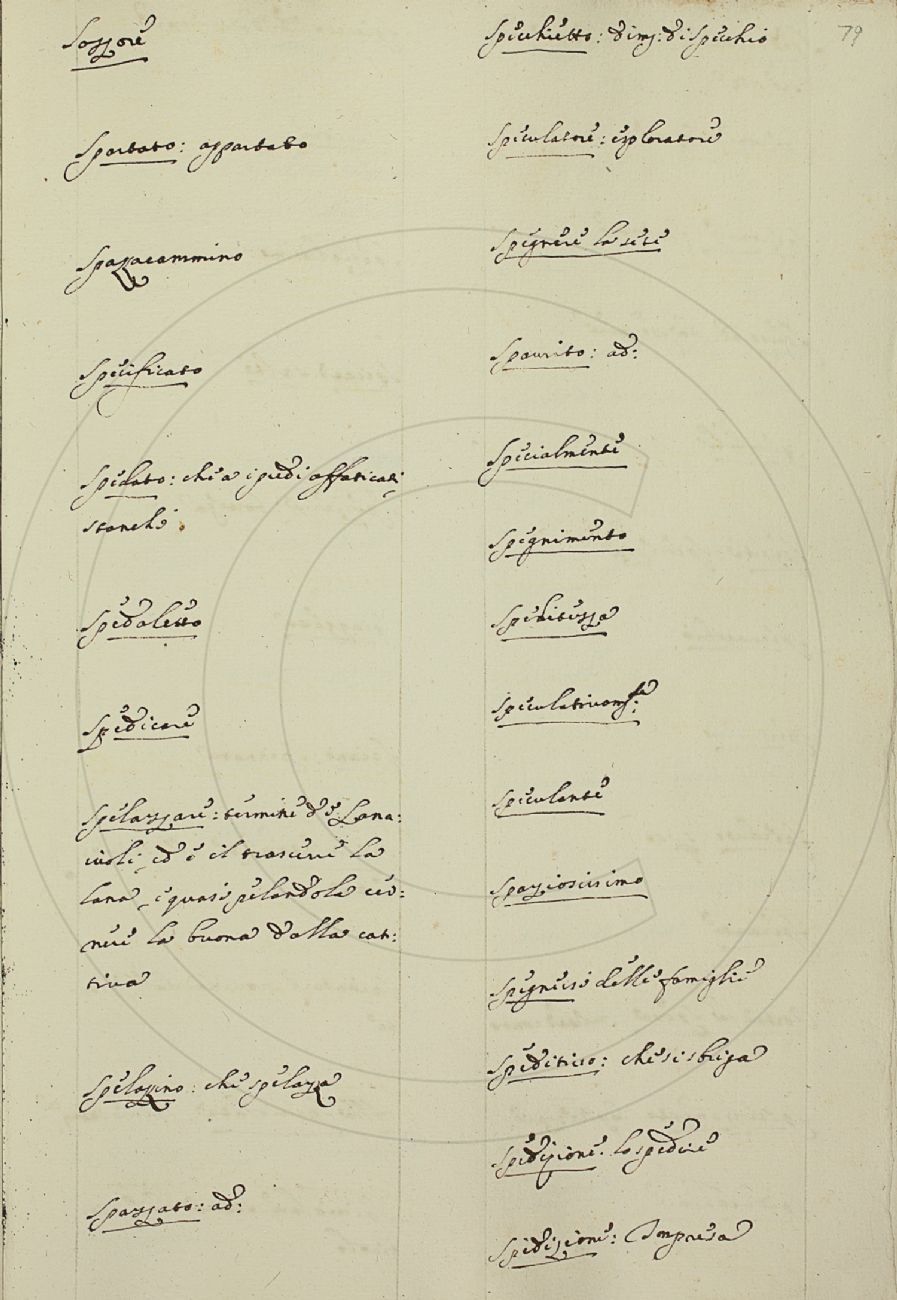 Sozzore
Spartato: appartato
Spazzacammino
Specificato
Spedato: che a i piedi affaticati,
stanchi
Spedaletto
Spedicare
Spelazzare: termine de Lana:
iuoli, ed è il trascerre la
lana, e quasi pelandola cer:
nere la buona dalla cat:
tiva
Spelazzino: che spelazza
Spazzato: ad:
79
Specchietto: dim: di Specchio
Speculatore: esploratore
Spegnere la sete
Spaurito: ad:
Specialmente
Spegnimento
Speculativam:te
Speculante
Spaziosissimo
Spegnersi delle famiglie
Speditivo: che si sbriga
Spedizione: lo spedire
Spedizione: Impresa